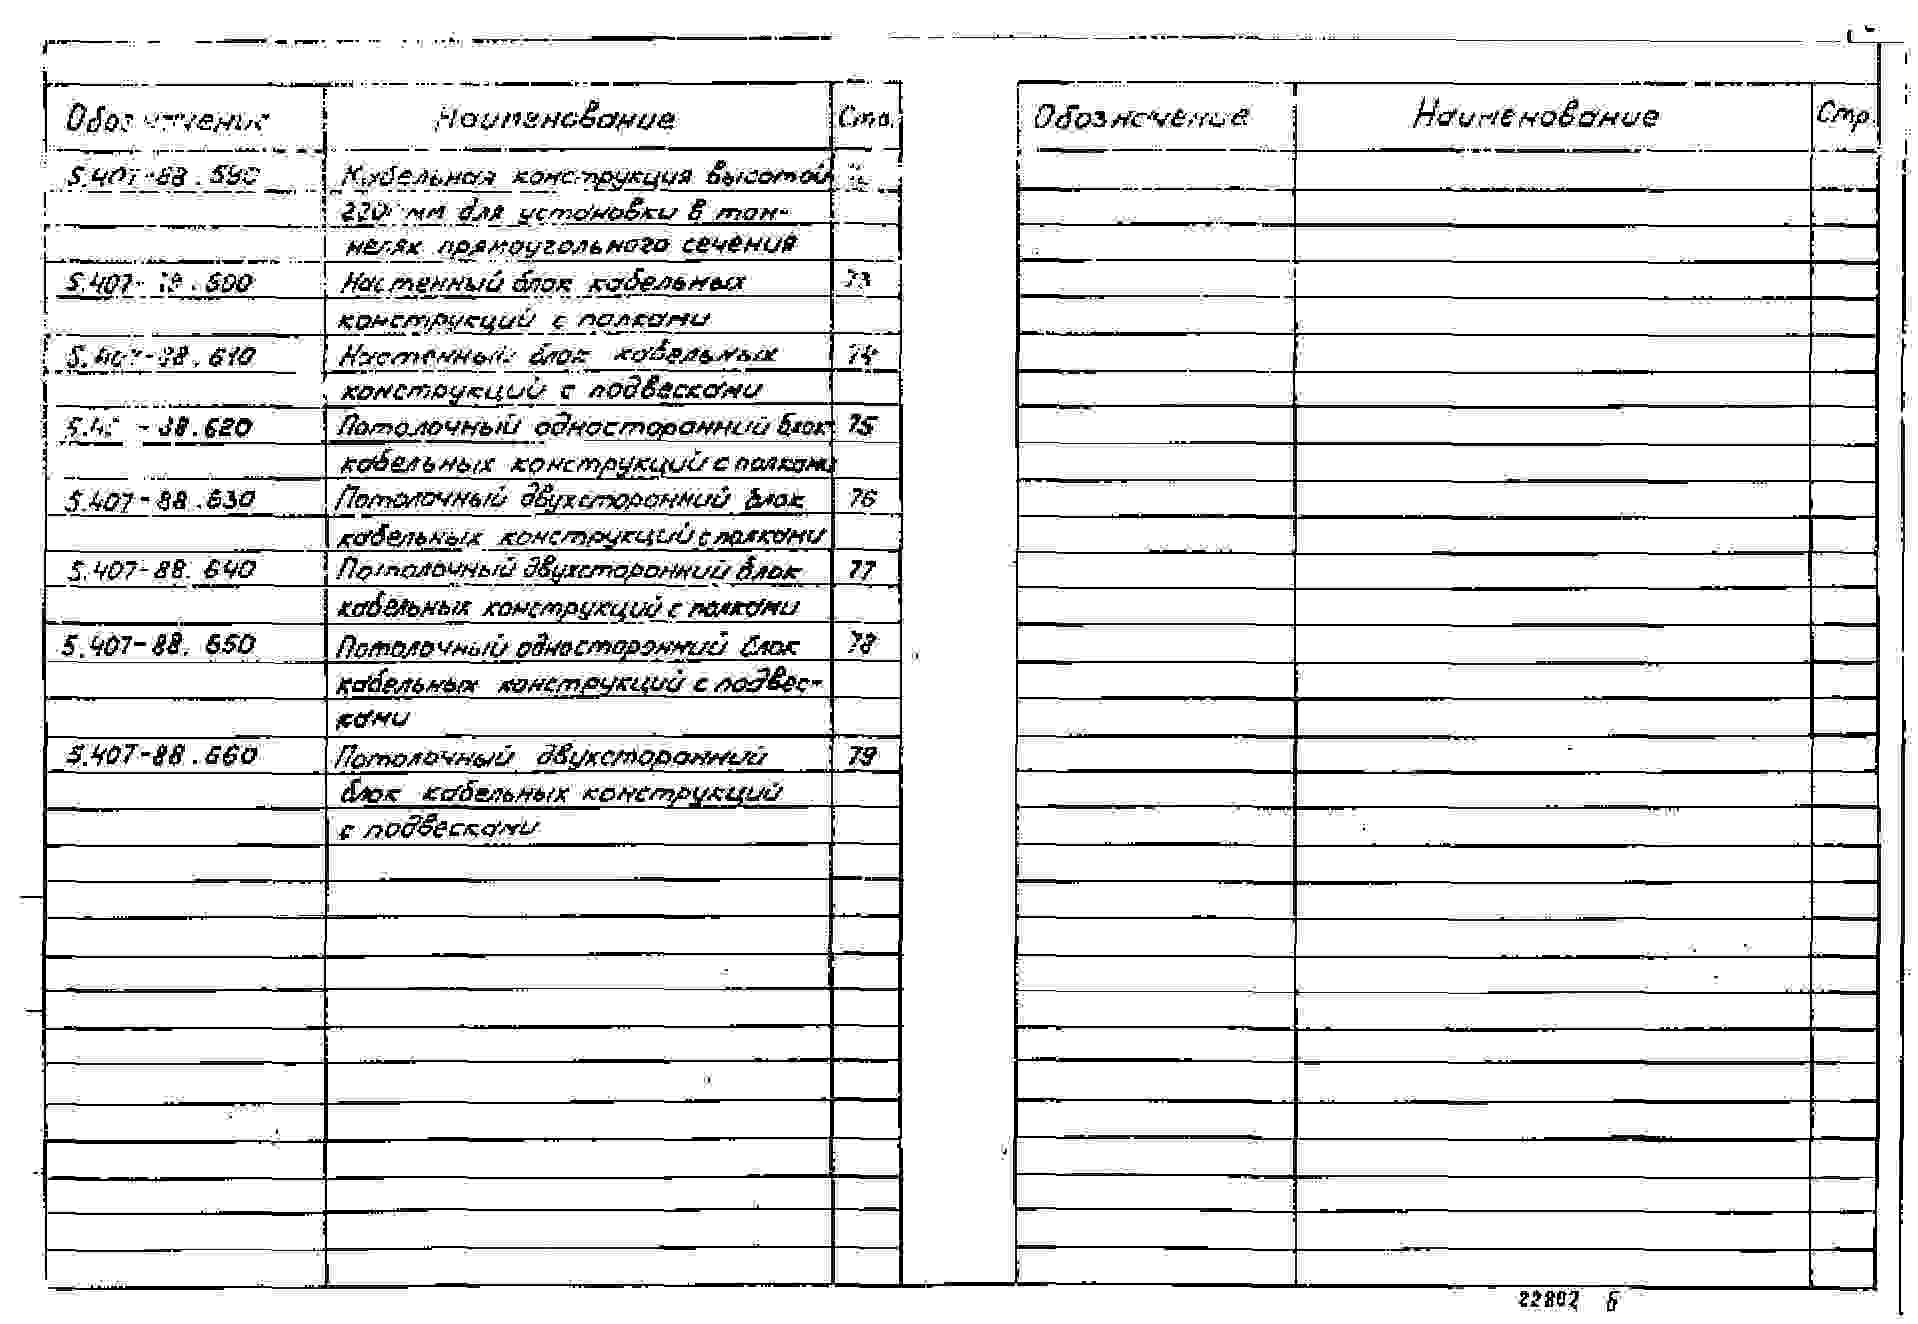 Обозначение Наименование Стр.
5.407-88.590 Кабельная конструкция высотой
мм для установки в тон-
нелях прямоугольного сечения
5.407- .600 Настенный блок кабельных 73
конструкций с полками
5.407-88.610 Настенный блок кабельных 74
конструкций с подвесками
-88.620 Потолочный односторонний блок 75
кабельных конструкций с полками
5.407-88.630 Потолочный двухсторонний блок 76
кабельных конструкций с полками
5.407-88.640 Потолочный двухсторонний блок 77
кабельных конструкций с полками
5.407-88.650 Потолочный односторонний блок 78
кабельных конструкций с подвес-
ками
5.407-88.660 Потолочный двухсторонний 79
блок кабельных конструкций
с подвесками
Обозначение Наименование Стр.
22802 6